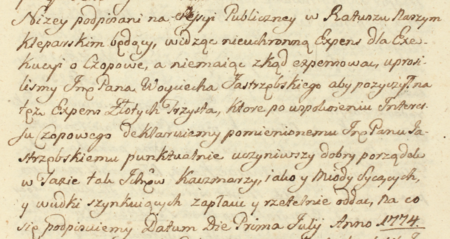 Niżey podpisani na Sessyi Publiczney w Ratuszu Naszym
Kleparskim będący, widząc nieuchronną Expens dla Exe-
kucyi o Czopowe, a niemaiąc zkąd expensować, uprosi-
lismy Jmć Pana Woyciecha Jastrzębskiego aby pozyczył na
tęż Expens Złotych Trzysta, ktore po uspokoieniu Interes-
su Czopowego deklaruiemy pomienionemu Jmć Panu Ja-
strzębskiemu punktualnie uczyniwszy dobry porządek
w Taxie tak Kaczmarzy, iako y Miody Sycących,
y wudki szynkuiących zapłacić y rzetelnie oddac, na co
się podpisuiemy Datum Die Prima Julij Anno 1774